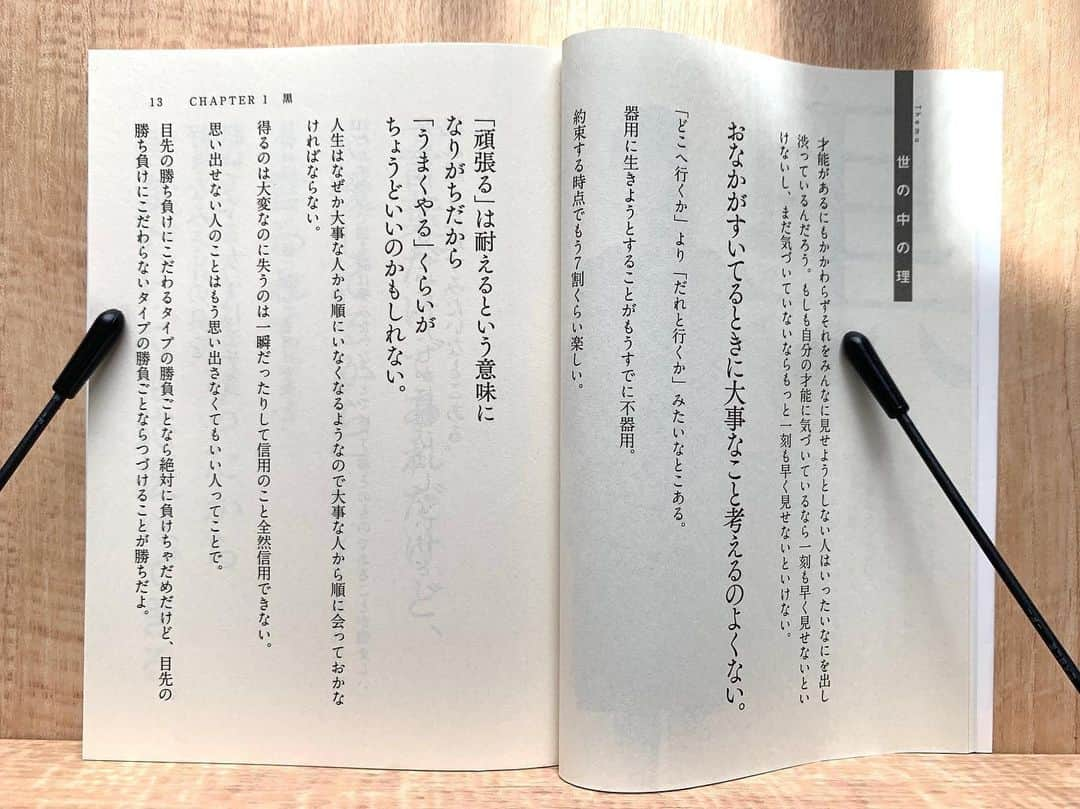 Theme
世の中の理
才能があるにもかかわらずそれをみんなに見せようとしない人はいったいなにを出し
渋っているんだろう。もしも自分の才能に気づいているなら一刻も早く見せないとい
けないし、まだ気づいていないならもっと一刻も早く見せないといけない。
おなかがすいてるときに大事なこと考えるのよくない。
「どこへ行くか」より「だれと行くか」みたいなとこある。
器用に生きようとすることがもうすでに不器用。
約束する時点でもう7割くらい楽しい。
13 CHAPTER 1 黒
「頑張る」は耐えるという意味に
なりがちだから
「うまくやる」くらいが
ちょうどいいのかもしれない。
人生はなぜか大事な人から順にいなくなるようなので大事な人から順に会っておかな
ければならない。
得るのは大変なのに失うのは一瞬だったりして信用のこと全然信用できない。
思い出せない人のことはもう思い出さなくてもいい人ってことで。
目先の勝ち負けにこだわるタイプの勝負ごとなら絶対に負けちゃだめだけど、目先の
勝ち負けにこだわらないタイプの勝負ごとならつづけることが勝ちだよ。